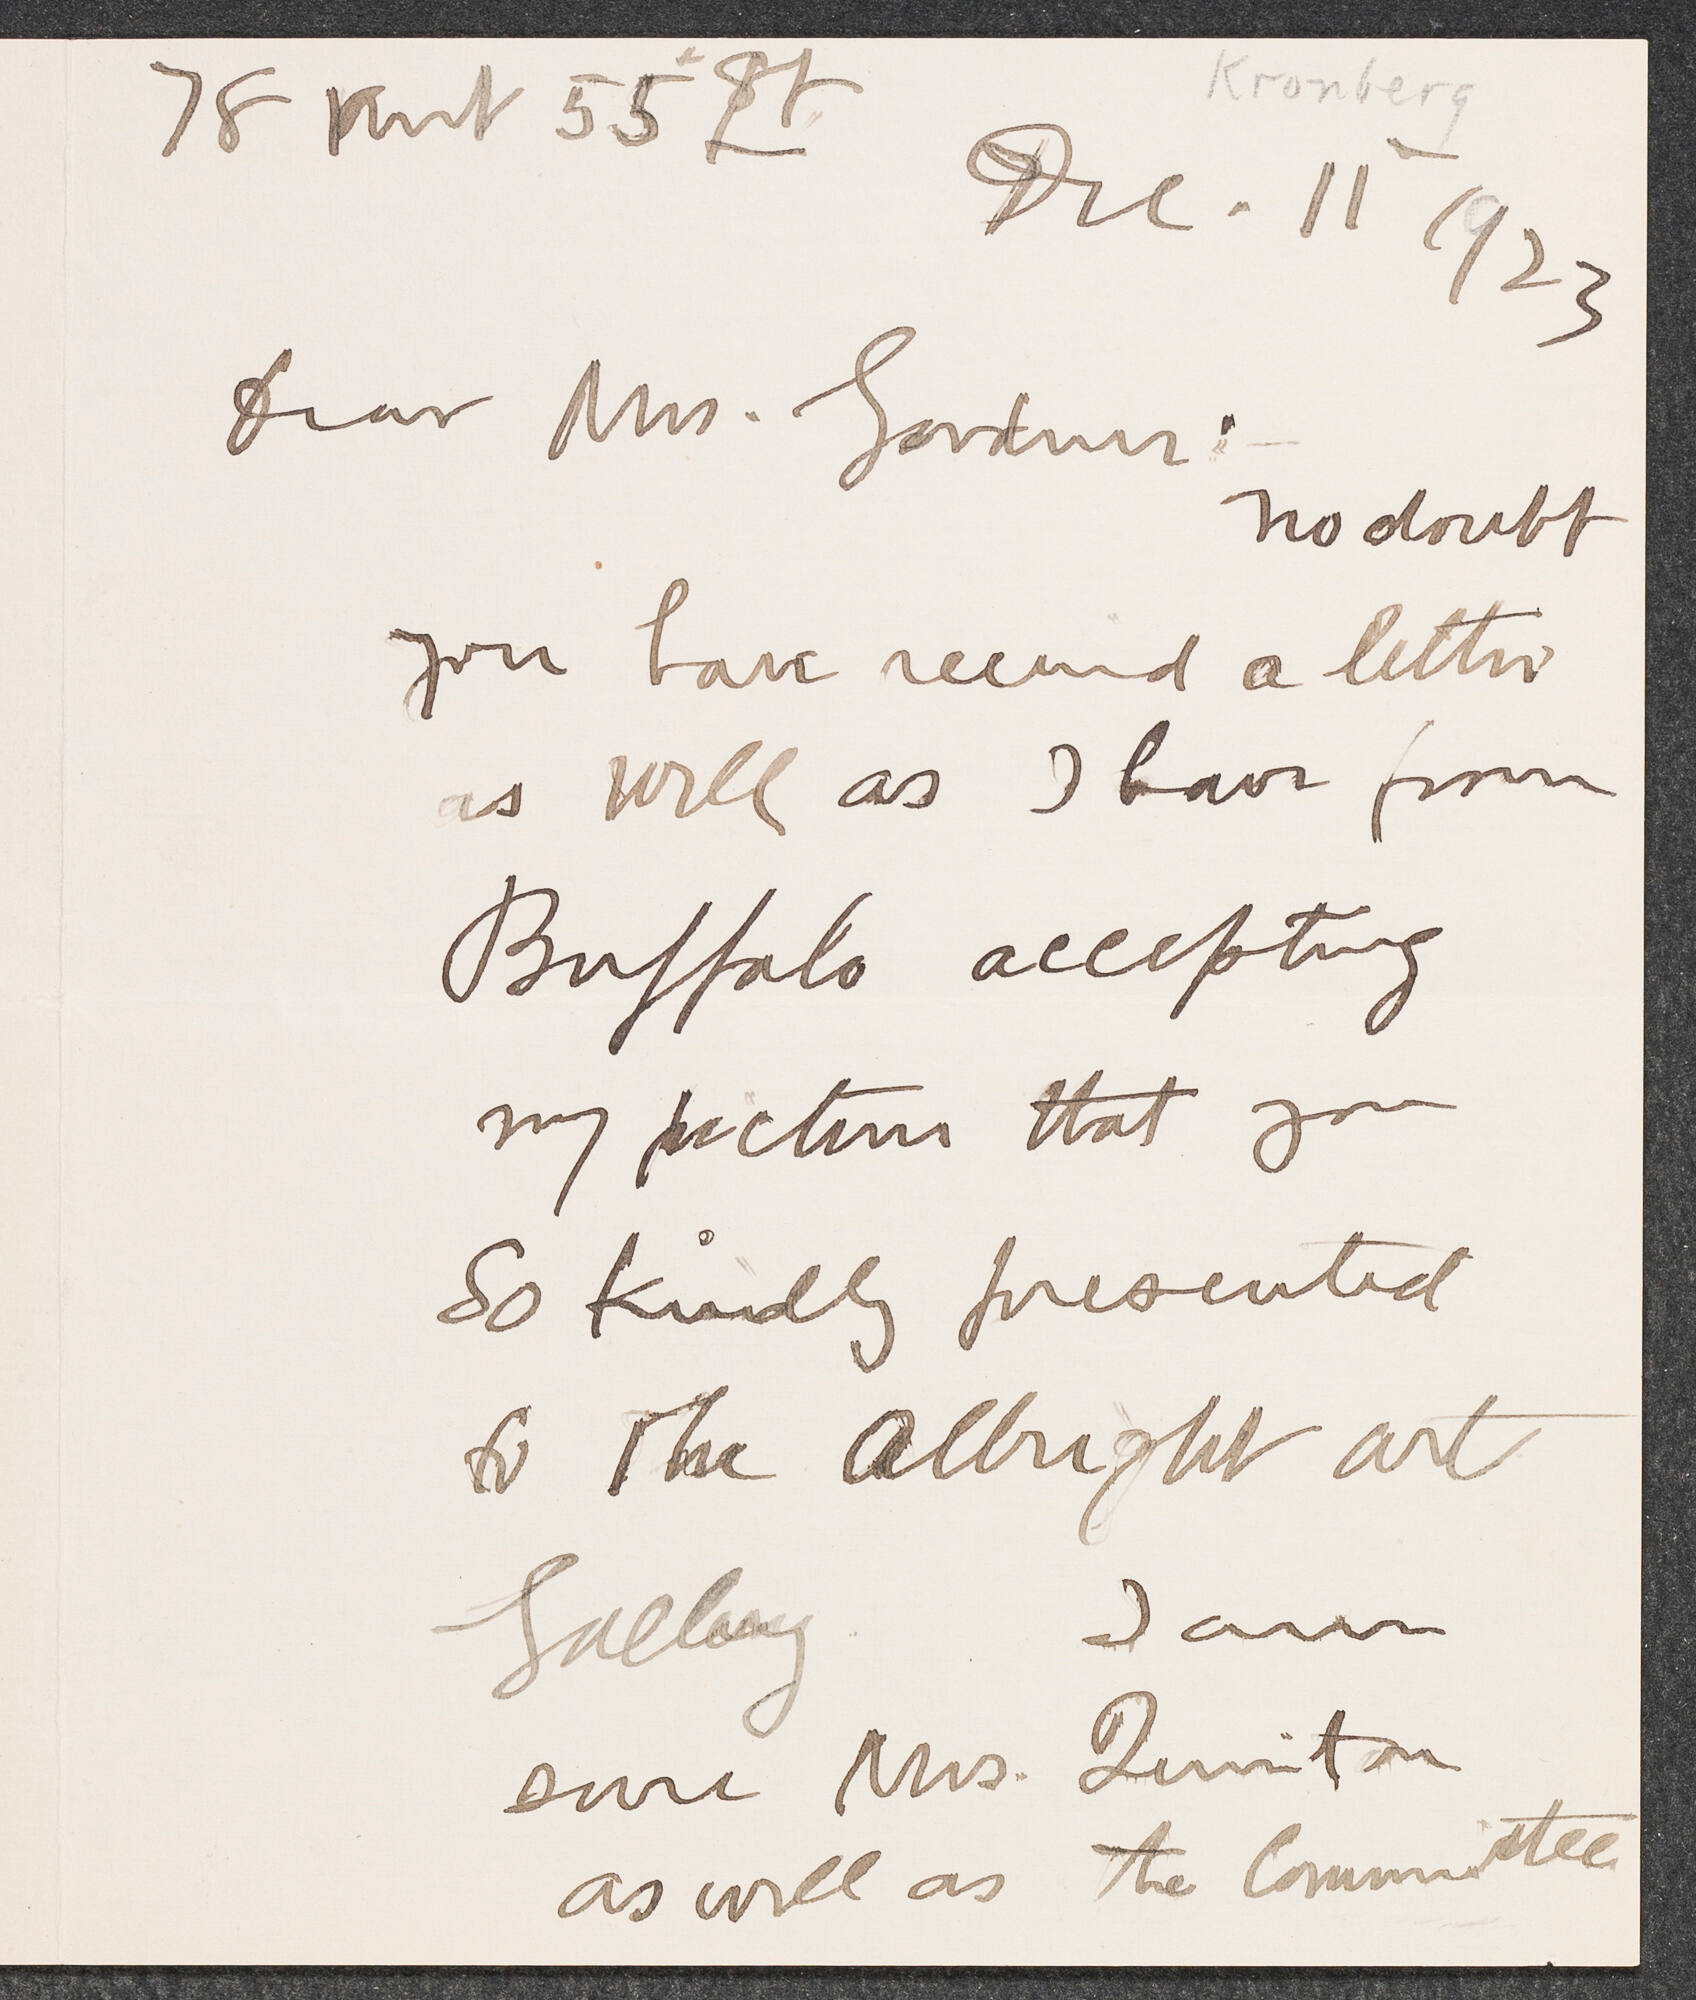 78 West 55th St
Kronberg
Dec. 11 1923
Dear Mrs. Gardner:-
no doubt
you have received a letter
as well as I have from
Buffalo accepting
my picture that you
So kindly presented
to The Albright art
Gallery. I am
sure Mrs. Quinton
as well as the Committee